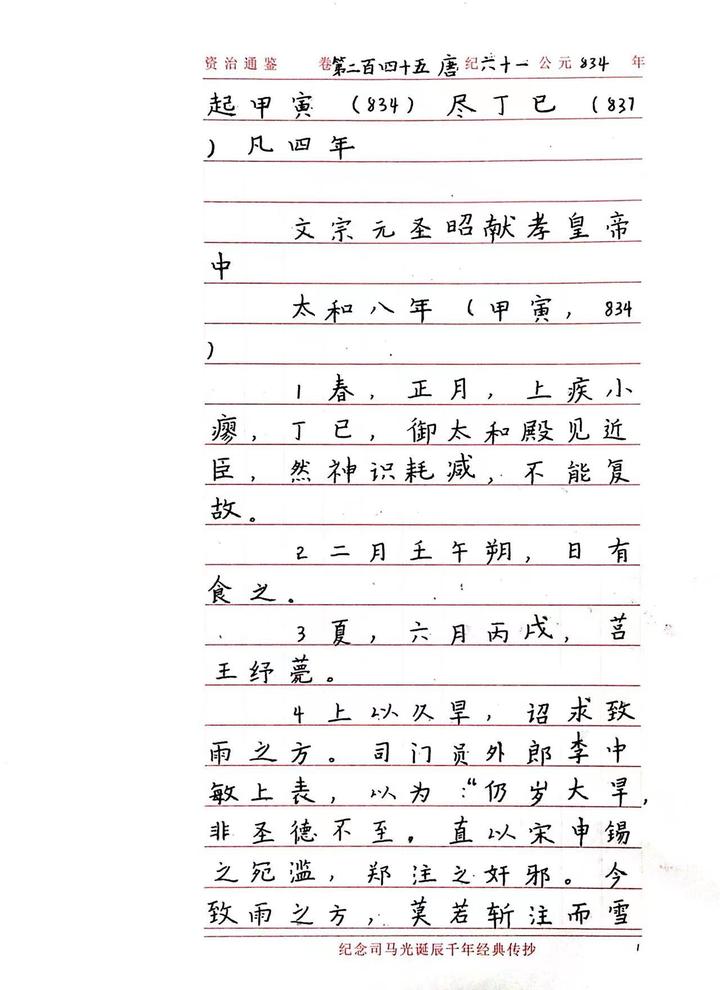 资治通鉴 卷第二百四十五 唐纪六十一 公元834年
起甲寅（834）尽丁巳（837
）凡四年
文宗元圣昭献孝皇帝
中
太和八年（甲寅，834
）
1春，正月，上疾小
瘳，丁巳，御太和殿见近
臣，然神识耗减，不能复
故。
2二月壬午朔，日有
食之。
3夏，六月丙戌，莒
王纾薨。
4上以久旱，诏求致
雨之方。司门员外郎李中
敏上表，以为：“仍岁大旱，
非圣德不至。直以宋申锡
之冤滥，郑注之奸邪。今
致雨之方，莫若斩注而雪
纪念司马光诞辰千年经典传抄 1